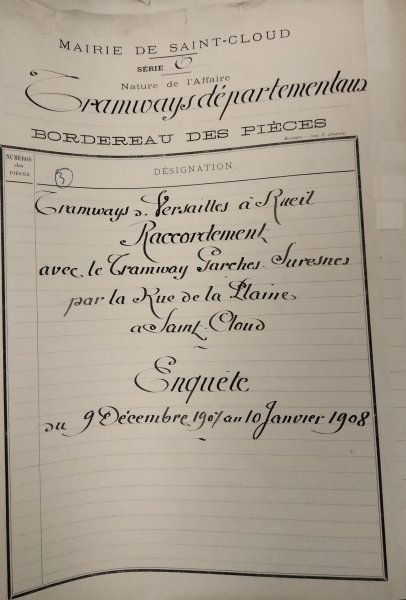 MAIRIE DE SAINT-CLOUD
SÉRIE O
Nature de l'Affaire
Tramways départementaux
BORDEREAU DES PIÈCES
NUMÉROS
des
PIÈCES
3
DÉSIGNATION
Tramways de Versailles à Rueil
Raccordement
avec le Tramway Garches-Suresnes
par la Rue de la Plaine
à Saint-Cloud
Enquête
du 9 Décembre 1907 au 10 Janvier 1908